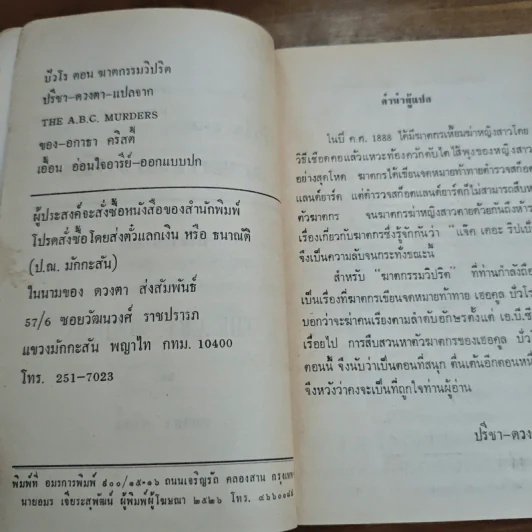 ปัวโร ตอน ฆาตกรรมวิปริต
ปรีชา-ดวงตา-แปลจาก
THE A.B.C. MURDERS
ของ-อกาธา คริสตี้
เอื้อม อ่อนใจอารีย์-ออกแบบปก
ผู้ประสงค์จะสั่งซื้อหนังสือของสำนักพิมพ์
โปรดสั่งซื้อโดยส่งตั๋วแลกเงิน หรือ ธนาณัติ
(ป.ณ. มักกะสัน)
ในนามของ ดวงตา ส่งสัมพันธ์
57/6 ซอยวัฒนวงศ์ ราชปรารภ
แขวงมักกะสัน พญาไท กทม. 10400
โทร. 251-7023
พิมพ์ที่ อมรการพิมพ์ ๕๐๐/๑๕-๑๖ ถนนเจริญรัถ คลองสาน กรุงเทพ
นายอมร เจียระสุพัฒน์ ผู้พิมพ์ผู้โฆษณา ๒๕๒๖ โทร.
คำนำผู้แปล
ในปี ค.ศ. 1888 ได้มีฆาตกรเหี้ยมฆ่าหญิงสาวโดย
วิธีเชือดคอแล้วแหวะท้องควักตับไตไส้พุงของหญิงสาว
อย่างสุดโหด ฆาตกรได้เขียนจดหมายท้าทายตำรวจสก๊อต
แลนด์ยาร์ด แต่ตำรวจสก๊อตแลนด์ยาร์ดก็ไม่สามารถสืบห
ตัวฆาตกร จนฆาตกรฆ่าหญิงสาวตายด้วยกันถึงห้า
เรื่องเกี่ยวกับฆาตกรซึ่งรู้จักกันว่า "แจ๊ค เดอะ ริปเป้
จึงเป็นความลับจนกระทั่งขณะนี้
สำหรับ "ฆาตกรรมวิปริต" ที่ท่านกำลังถือ
เป็นเรื่องที่ฆาตกรเขียนจดหมายท้าทาย เฮอคูล ปัวโร
บอกว่าจะฆ่าคนเรียงตามลำดับอักษรตั้งแต่ เอ.บี.ซี
เรื่อยไป การสืบสวนหาตัวฆาตกรของเฮอคูล ปัว
ตอนนี้ จึงนับว่าเป็นตอนที่สนุก ตื่นเต้นอีกตอนหนึ่
จึงหวังว่าคงจะเป็นที่ถูกใจท่านผู้อ่าน
ปรีชา-ดวง